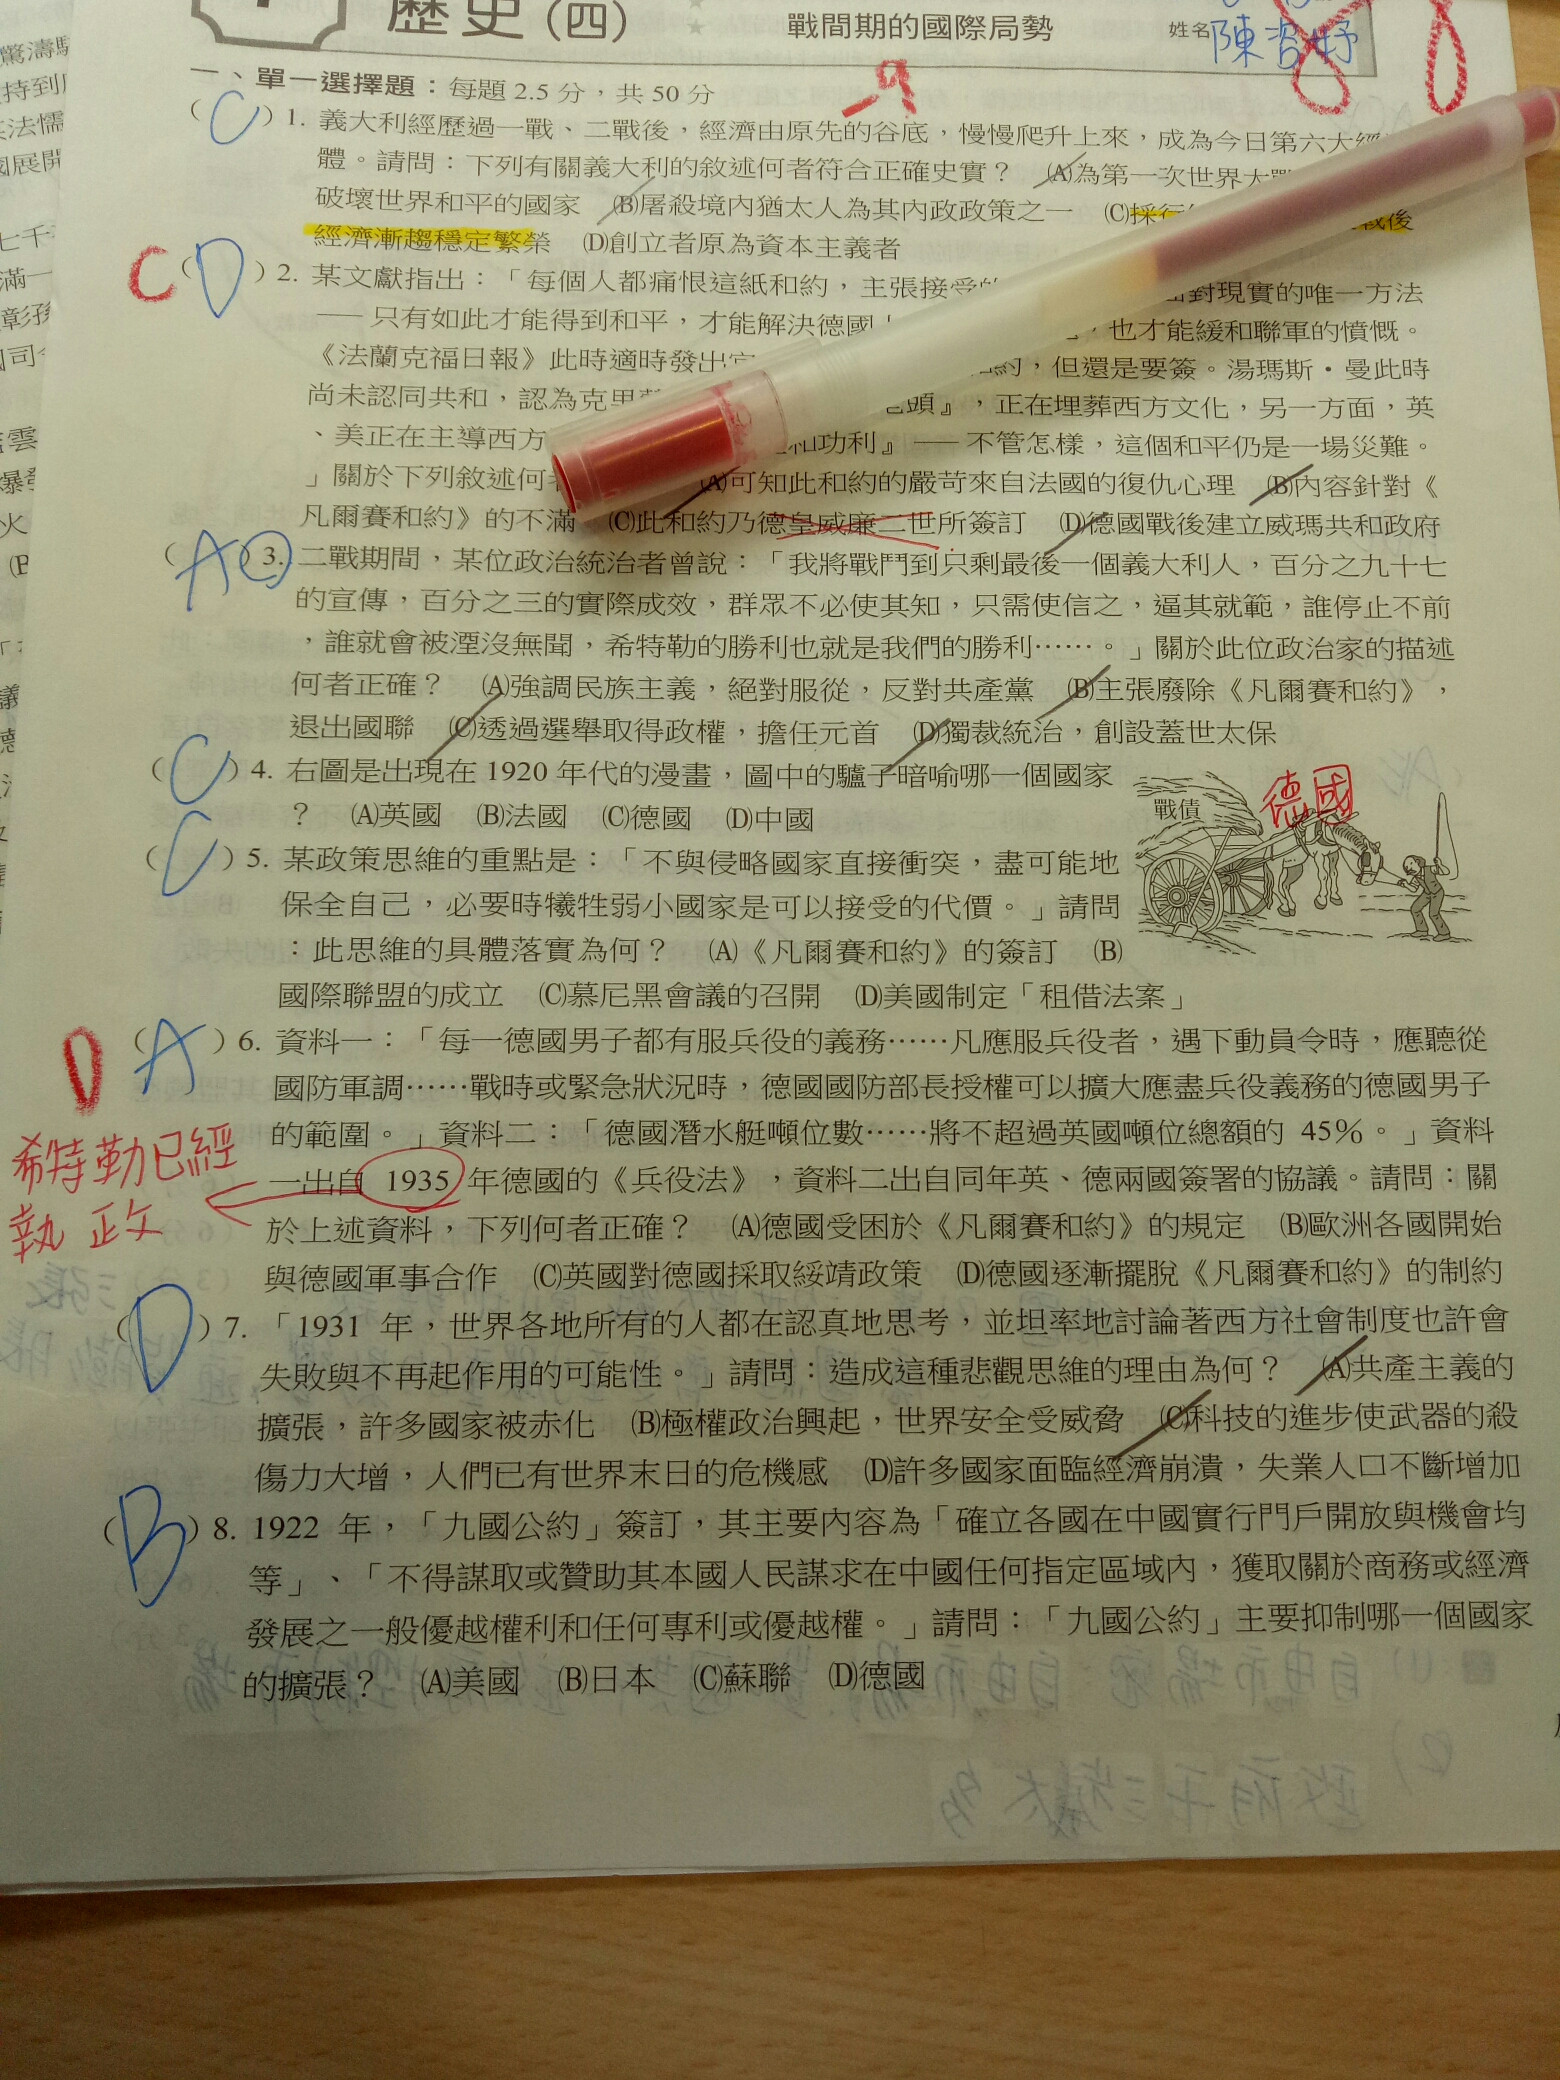 歷史(四)
戰間期的國際局勢
姓名
陳
88
一、單一選擇題：每題 2.5 分，共 50 分
-9
(C) 1. 義大利經歷過一戰、二戰後，經濟由原先的谷底，慢慢爬升上來，成為今日第六大經
體。請問：下列有關義大利的敘述何者符合正確史實？ (A)為第一次世界大
破壞世界和平的國家 (B)屠殺境內猶太人為其內政政策之一 (C)採行 戰後
經濟漸趨穩定繁榮 (D)創立者原為資本主義者
C (D) 2. 某文獻指出：「每個人都痛恨這紙和約，主張接受的 對現實的唯一方法
—— 只有如此才能得到和平，才能解決德國 ，也才能緩和聯軍的憤慨。
《法蘭克福日報》此時適時發出 約，但還是要簽。湯瑪斯・曼此時
尚未認同共和，認為克里 頭』，正在埋葬西方文化，另一方面，英
、美正在主導西方 和功利』—— 不管怎樣，這個和平仍是一場災難。
」關於下列敘述何 (A)可知此和約的嚴苛來自法國的復仇心理 (B)內容針對《
凡爾賽和約》的不滿 (C)此和約乃德皇威廉二世所簽訂 (D)德國戰後建立威瑪共和政府
(A) 3. 二戰期間，某位政治統治者曾說：「我將戰鬥到只剩最後一個義大利人，百分之九十七
的宣傳，百分之三的實際成效，群眾不必使其知，只需使信之，逼其就範，誰停止不前
，誰就會被湮沒無聞，希特勒的勝利也就是我們的勝利……。」關於此位政治家的描述
何者正確？ (A)強調民族主義，絕對服從，反對共產黨 (B)主張廢除《凡爾賽和約》，
退出國聯 (C)透過選舉取得政權，擔任元首 (D)獨裁統治，創設蓋世太保
(C) 4. 右圖是出現在 1920 年代的漫畫，圖中的驢子暗喻哪一個國家
？ (A)英國 (B)法國 (C)德國 (D)中國
戰債
德國
(C) 5. 某政策思維的重點是：「不與侵略國家直接衝突，盡可能地
保全自己，必要時犧牲弱小國家是可以接受的代價。」請問
：此思維的具體落實為何？ (A)《凡爾賽和約》的簽訂 (B)
國際聯盟的成立 (C)慕尼黑會議的召開 (D)美國制定「租借法案」
D (A) 6. 資料一：「每一德國男子都有服兵役的義務……凡應服兵役者，遇下動員令時，應聽從
國防軍調……戰時或緊急狀況時，德國國防部長授權可以擴大應盡兵役義務的德國男子
的範圍。」資料二：「德國潛水艇噸位數……將不超過英國噸位總額的 45%。」資料
一出自 1935 年德國的《兵役法》，資料二出自同年英、德兩國簽署的協議。請問：關
於上述資料，下列何者正確？ (A)德國受困於《凡爾賽和約》的規定 (B)歐洲各國開始
與德國軍事合作 (C)英國對德國採取綏靖政策 (D)德國逐漸擺脫《凡爾賽和約》的制約
希特勒已經
執政
(D) 7. 「1931 年，世界各地所有的人都在認真地思考，並坦率地討論著西方社會制度也許會
失敗與不再起作用的可能性。」請問：造成這種悲觀思維的理由為何？ (A)共產主義的
擴張，許多國家被赤化 (B)極權政治興起，世界安全受威脅 (C)科技的進步使武器的殺
傷力大增，人們已有世界末日的危機感 (D)許多國家面臨經濟崩潰，失業人口不斷增加
(B) 8. 1922 年，「九國公約」簽訂，其主要內容為「確立各國在中國實行門戶開放與機會均
等」、「不得謀取或贊助其本國人民謀求在中國任何指定區域內，獲取關於商務或經濟
發展之一般優越權利和任何專利或優越權。」請問：「九國公約」主要抑制哪一個國家
的擴張？ (A)美國 (B)日本 (C)蘇聯 (D)德國